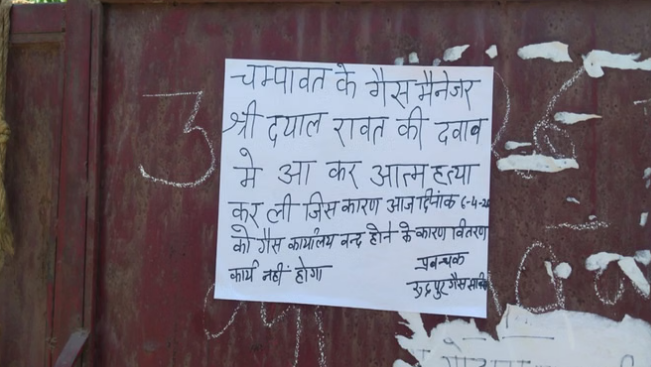 चम्पावत के गैस मैनेजर
श्री दयाल रावत की दवाब
मे आ कर आत्म हत्या
कर ली जिस कारण आज दिनांक 6-4-2
को गैस कार्यालय बन्द होने के कारण वितरण
कार्य नहीं होगा
प्रबन्धक
रुद्रपुर गैस